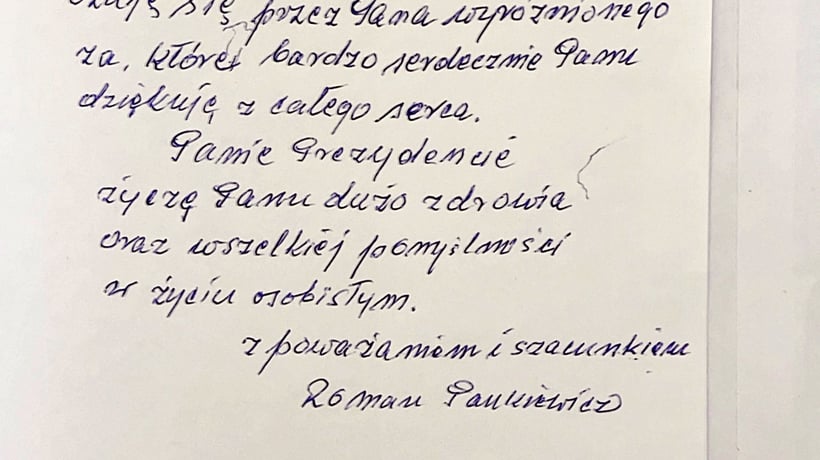 Czuję się przez Pana wzpróżnionego
za, które bardzo serdecznie Panu
dziękuję z całego serca.
Panie Prezydencie
życzę Panu dużo zdrowia
oraz wszelkiej pomyślności
w życiu osobistym.
z poważaniem i szacunkiem
Roman Pankiewicz